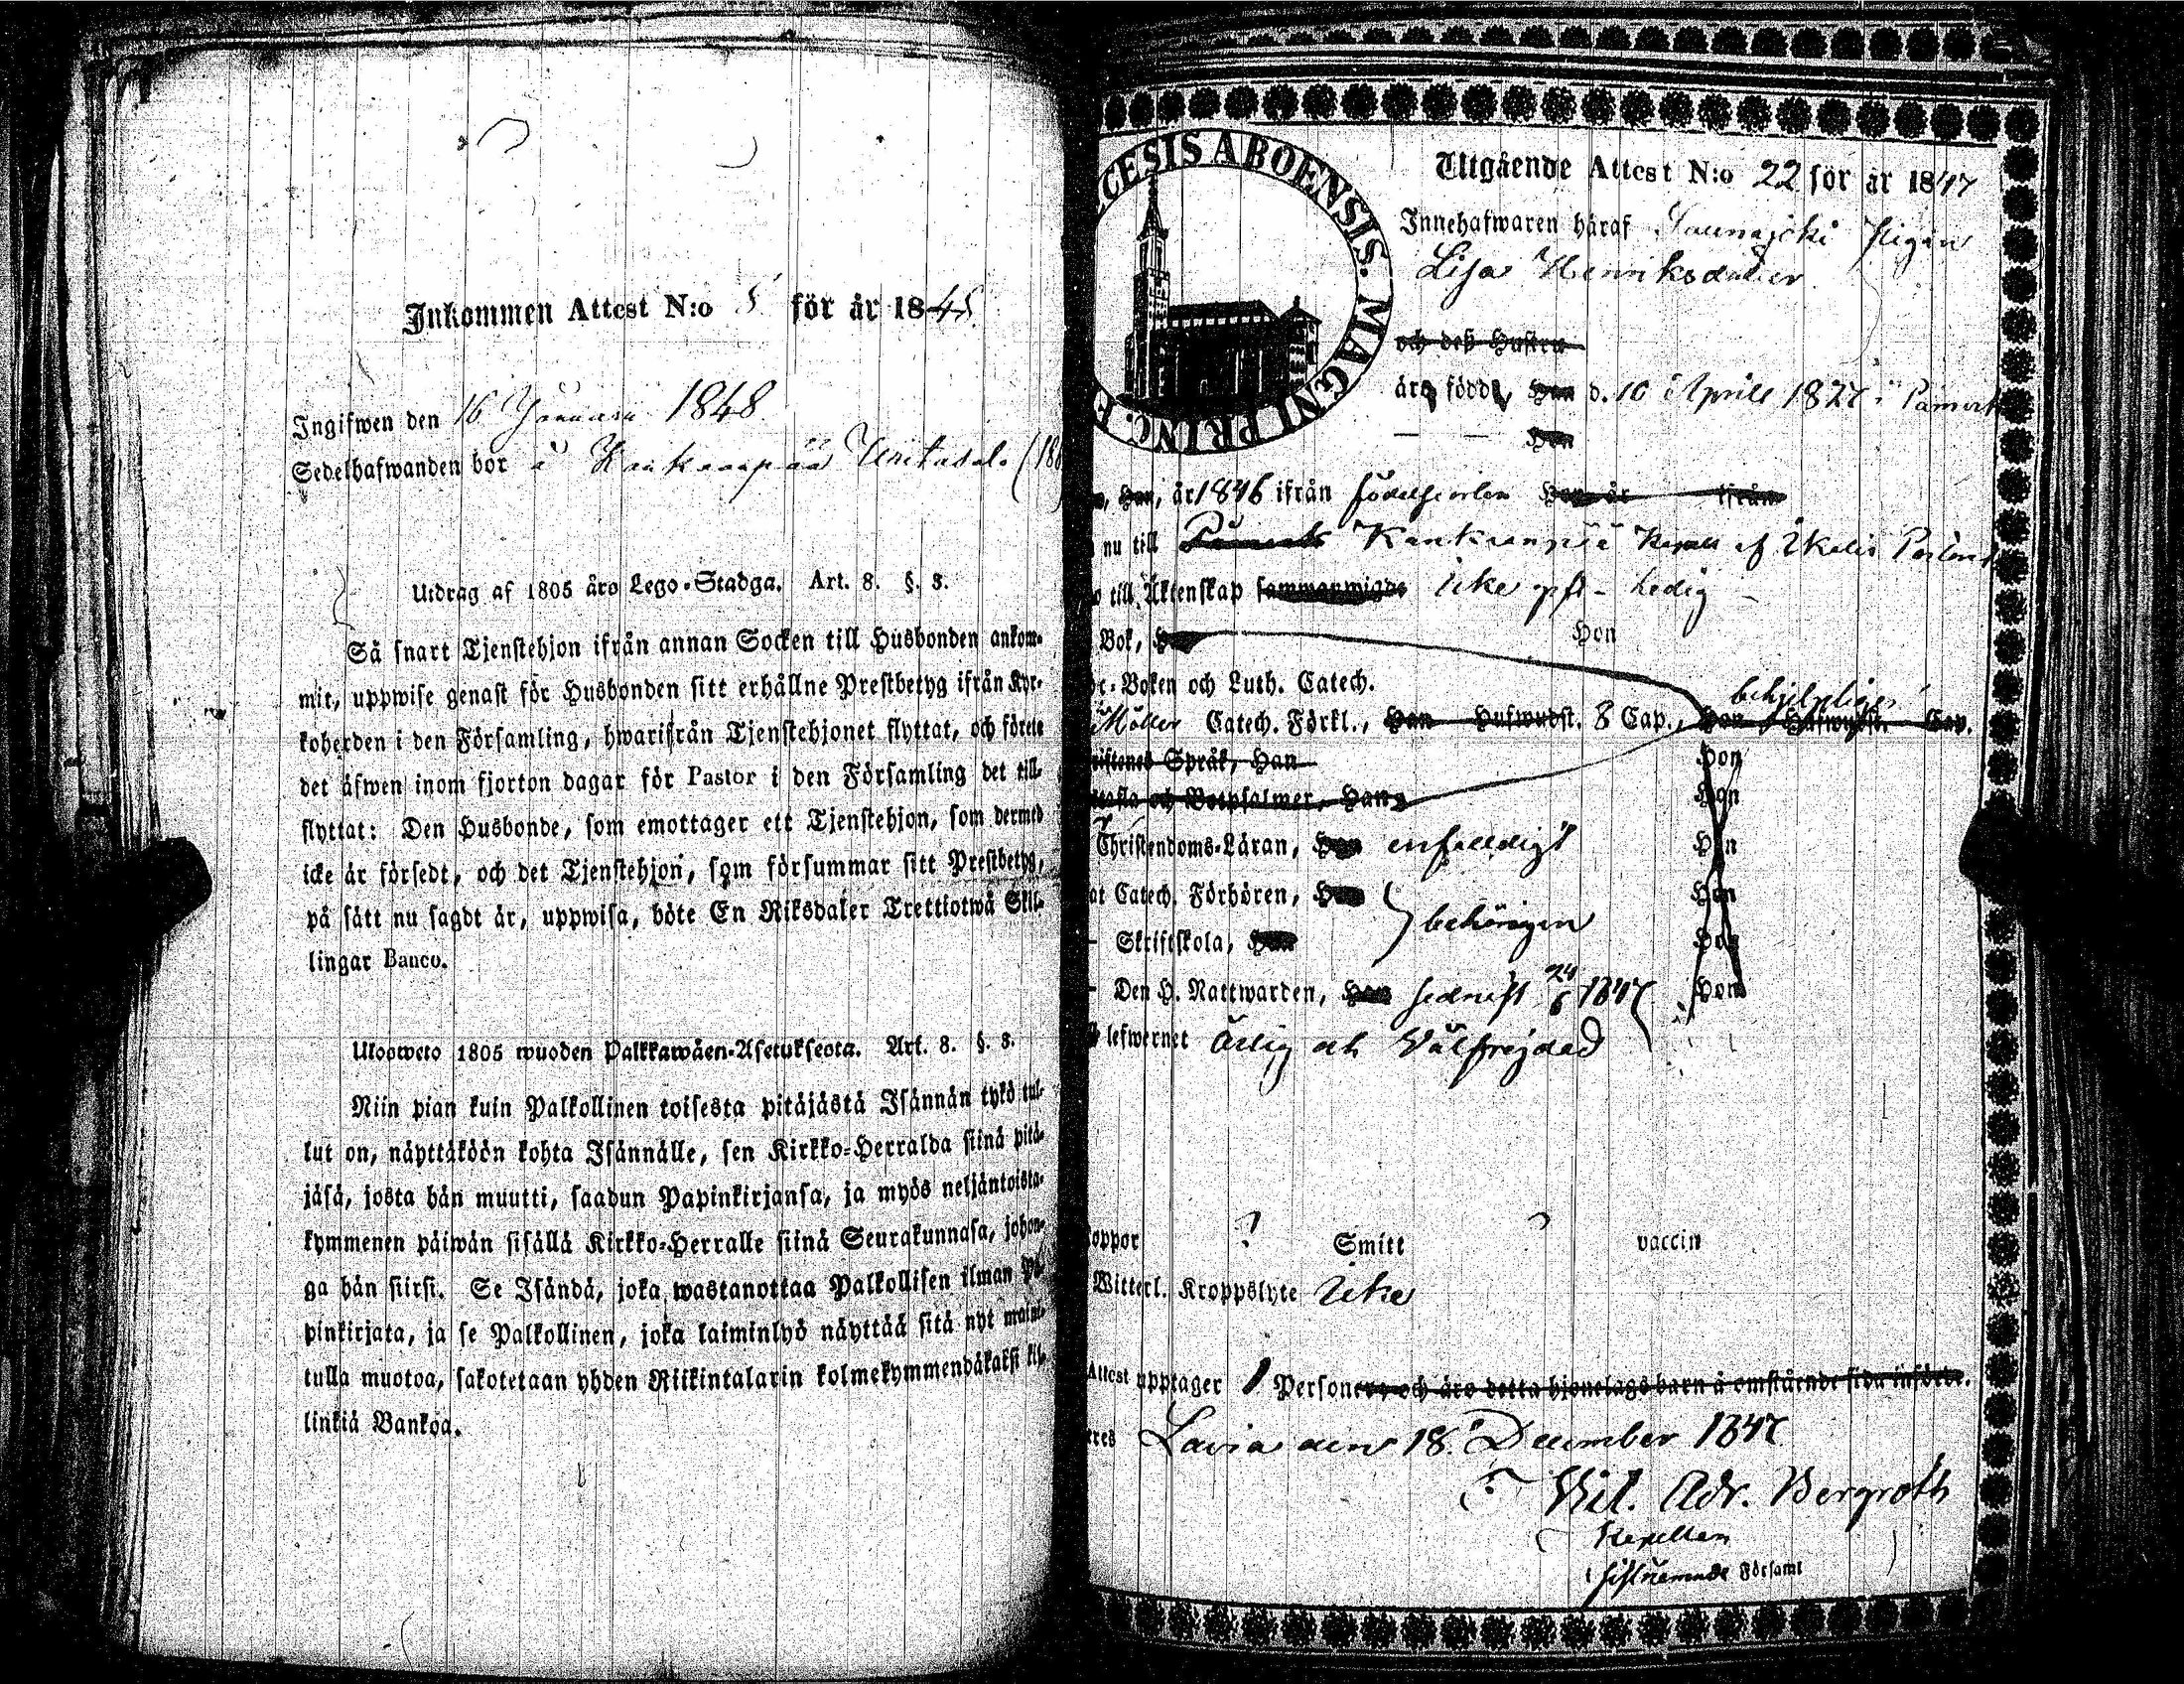 Inkommen Attest N:o 5 för år 1845.
Ingifwen den 16 Januari 1848
Sedelhafwanden bor i Kankaanpää
Utdrag af 1805 års Lego-Stadga. Art. 8. §. 8.
Så snart Tjenstehjon ifrån annan Socken till Husbonden ankom-
mit, uppwise genast för Husbonden sitt erhållne Prestbetyg ifrån Kyr-
koherden i den Församling, hwarifrån Tjenstehjonet flyttat, och förete
det äfwen inom fjorton dagar för Pastor i den Församling det till-
flyttat: Den Husbonde, som emottager ett Tjenstehjon, som dermed
icke är försedt, och det Tjenstehjon, som försummar sitt Prestbetyg,
på sätt nu sagdt är, uppwisa, böte En Riksdaler Trettiotwå Skil-
lingar Banco.
Ulosweto 1805 wuoden Palkkawäen-Asetuksesta. Art. 8. §. 8.
Niin pian kuin Palkollinen toisesta pitäjästä Isännän tykö tul-
lut on, näyttäköön kohta Isännälle, sen Kirkko-Herralda siinä pitä-
jäsä, josta hän muutti, saadun Papinkirjansa, ja myös neljäntoista-
kymmenen päiwän sisällä Kirkko-Herralle siinä Seurakunnasa, johon-
ga hän siirsi. Se Isändä, joka wastanottaa Palkollisen ilman Pa-
pinkirjata, ja se Palkollinen, joka laiminlyö näyttää sitä nyt maini-
tulla muotoa, sakotetaan yhden Riikintalarin kolmekymmendäkaksi kil-
linkiä Bankoa.
CESIS ABOENSIS. MAGNI PRINC. F
Utgående Attest N:o 22 för år 1847
Innehafwaren häraf pigan
Lisa Henriksdotter
och deß Hustru
äro födde, Han d. 10 Aprill 1827 i
Hon
Han, år 1846 ifrån födelseorten Hon år ifrån
nu till Kankaanpää Kapell af
till Äktenskap sammanwigde icke ledig
Bok, Hon
Boken och Luth. Catech.
Möller Catech. Förkl., Han Hufwudst. 8 Cap., Hon Hufwudst. Cap. behjelpligen
Språk, Han Hon
och Botpsalmer, Han Hon
Christendoms-Läran, Han enfaldigt Hon
Catech. Förhören, Han Hon
behörigen
Skriftskola, Han Hon
Den H. Nattwarden, Han sednast 24/6 1847 Hon
lefwernet ärlig och Välfrejdad
koppor ? Smitt ? vaccin
Witterl. Kroppslyte icke
Attest upptager 1 Personer, och äro detta hjonelags barn å omstående sida införde.
Lavia den 18 December 1847
Vil. Adr. Bergroth
Kapellan
Församl